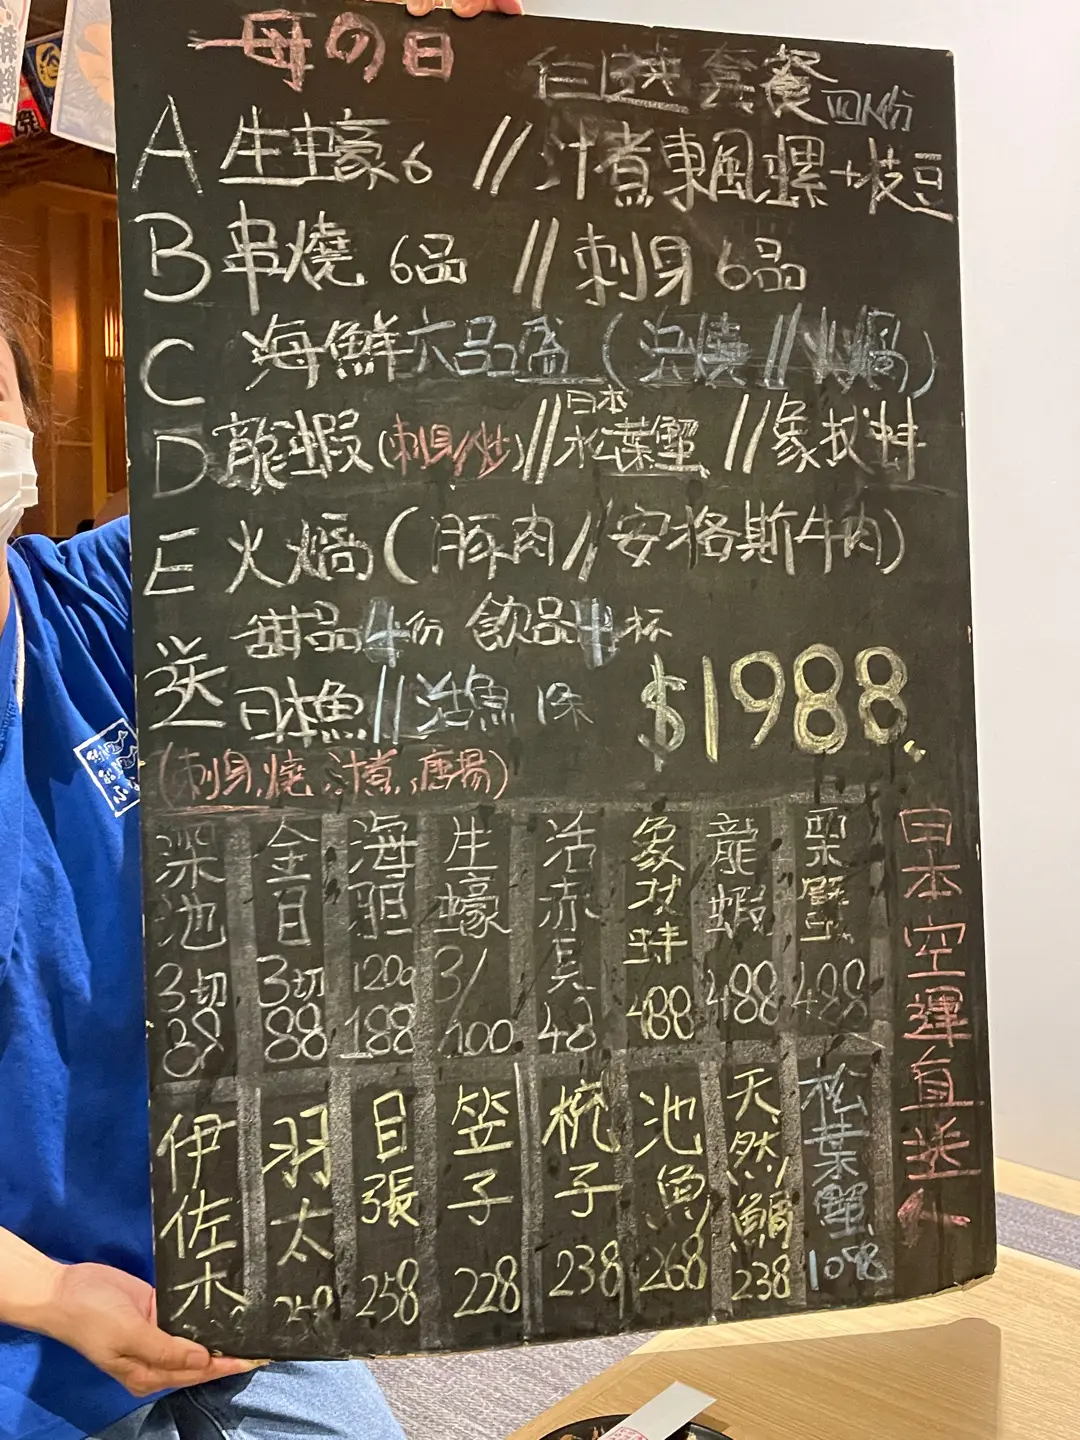 母の日
套餐 四人份
A 生蠔6 // 汁煮東風螺+枝豆
B 串燒 6品 // 刺身 6品
C 海鮮六品盛 (浜燒//火鍋)
D 龍蝦(刺身/炒)//日本松葉蟹//象拔蚌
E 火焗(豚肉//安格斯牛肉)
送 甜品4份 飲品4杯
日本魚//活魚 1味
$1988
(刺身,燒,汁煮,唐揚)
深池 3切 88
金目 3切 88
海胆 120g 188
生蠔 3/100
活赤貝 48
象拔蚌 488
龍蝦 488
栗蟹 488
日本空運直送
伊佐木
羽太 258
目張 258
笠子 228
梳子 238
池魚 268
天然鯛 238
松葉蟹 1098